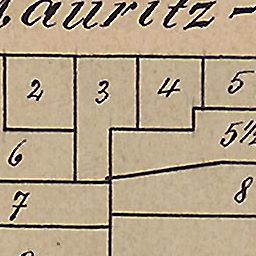 auritz-
2 3 4 5
5½
6
8
7